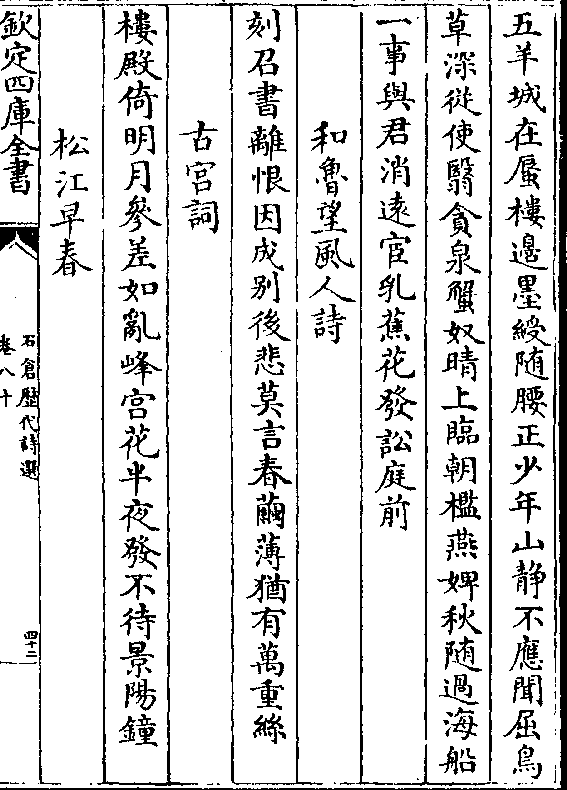 五羊城在蜃樓邊墨綬随腰正少年山静不應聞屈鳥
草深從使翳貪泉蟹奴晴上臨朝檻燕婢秋随過海船
一事與君消遠宦乳蕉花發訟庭前
和魯望風人詩
刻召書離恨因成别後悲莫言春繭薄猶有萬重絲
古宫詞
樓殿倚明月參差如亂峰宫花半夜發不待景陽鐘
松江早春
欽定四庫全書
石倉歴代詩選
卷八十
四十二